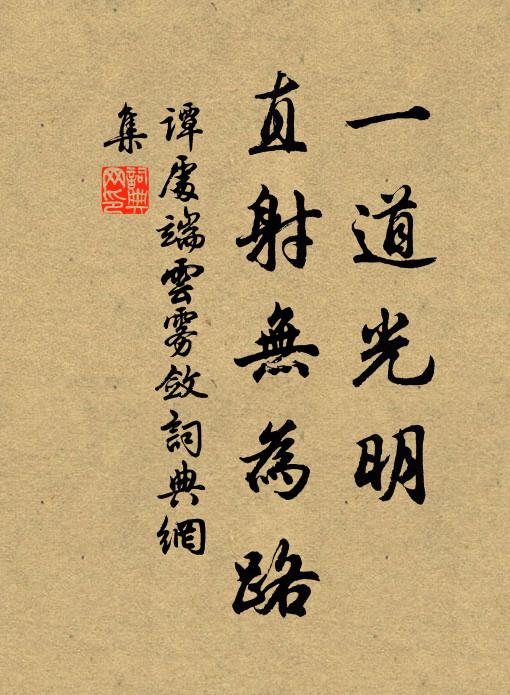 一道光明
直射無為路
譚處端雲霧斂詞典網
集
詞典
网印